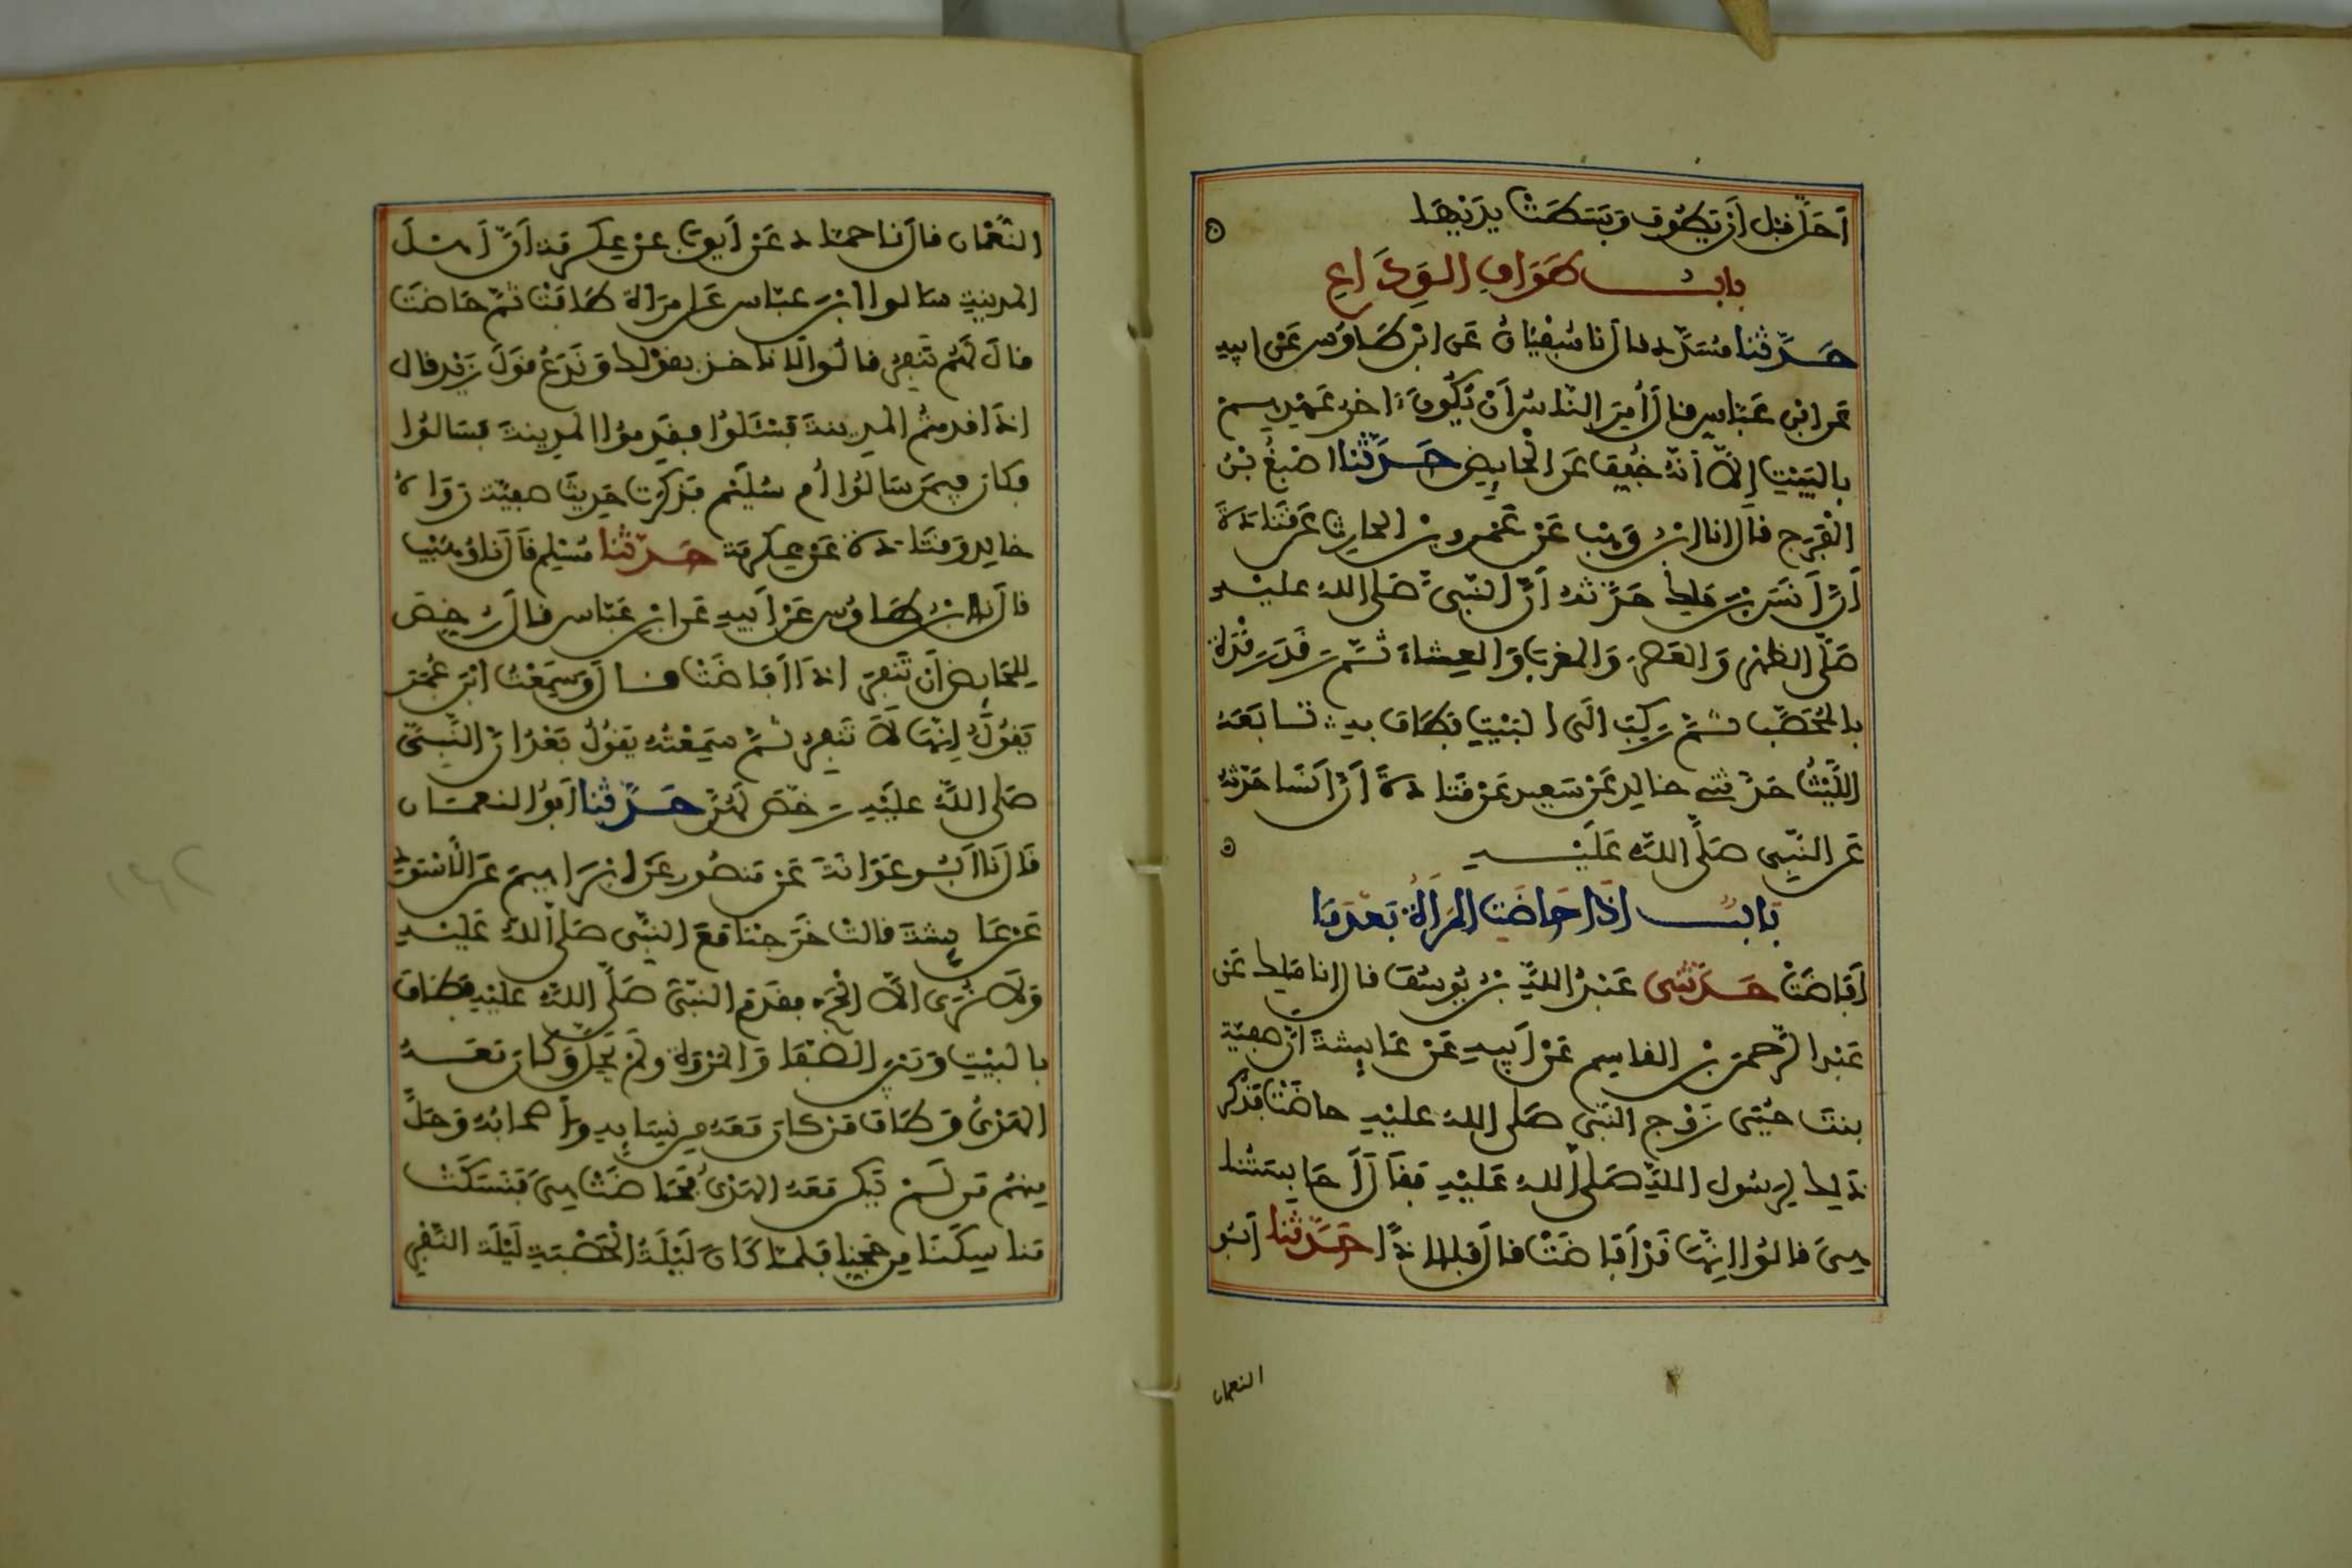 أَحَلَّ قبل أن يطوف وبسطت يديها
باب طواف الوداع
حدثنا مسدد قال نا سفيان عن ابن طاوس عن ابيه
عن ابن عباس قال أمر الناس أن يكون اخر عهدهم
بالبيت إلا أنه خفف عن الحايض حدثنا اصبغ بن
الفرج قال انا ابن وهب عن عمرو بن الحارث عن قتادة
أن أنس بن ملك حدثه أن النبي صلى الله عليه
صلى الظهر والعصر والمغرب والعشاء ثم رقد رقدة
بالمحصب ثم ركب الى البيت فطاف به تابعه
الليث حدثني خالد عن سعيد عن قتادة أن أنسا حدثه
عن النبي صلى الله عليه
باب اذا حاضت المرأة بعد ما
أفاضت حدثني عبد الله بن يوسف قال انا ملك عن
عبد الرحمن بن القاسم عن أبيه عن عايشة ان صفية
بنت حيي زوج النبي صلى الله عليه حاضت فذكر
ذلك لرسول الله صلى الله عليه فقال أحابستنا
هي قالوا إنها قد أفاضت قال فلا اذا حدثنا أبو
النعمان
النعمان قال نا حماد عن أيوب عن عكرمة أن أهل
المدينة سالوا ابن عباس عن امرأة طافت ثم حاضت
قال لهم تنفر قالوا لا ناخذ بقولك وندع قول زيد قال
اذا قدمتم المدينة فسئلوا فقدموا المدينة فسالوا
فكان فيمن سالوا أم سليم فذكرت حديث صفية رواه
خالد وقتادة عن عكرمة حدثنا مسلم قال نا وهيب
قال نا ابن طاوس عن أبيه عن ابن عباس قال رخص
للحايض أن تنفر اذا أفاضت قال وسمعت ابن عمر
يقول إنها لا تنفر ثم سمعته يقول بعد ان النبي
صلى الله عليه رخص لهن حدثنا أبو النعمان
قال نا أبو عوانة عن منصور عن ابراهيم عن الأسود
عن عايشة قالت خرجنا مع النبي صلى الله عليه
ولا نرى إلا الحج فقدم النبي صلى الله عليه فطاف
بالبيت وبين الصفا والمروة ولم يحل وكان معه
الهدي وطاف من كان معه من نسايه وأصحابه وحل
منهم من لم يكن معه الهدي فحاضت هي فنسكت
مناسكنا من حجنا فلما كان ليلة الحصبة ليلة النفر